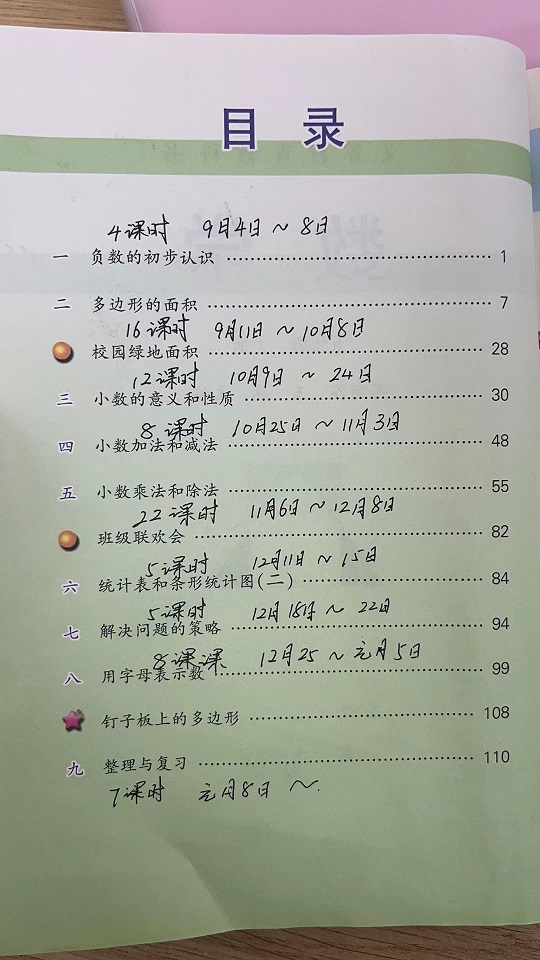 目 录
4课时 9月4日~8日
一 负数的初步认识 1
二 多边形的面积 7
16课时 9月11日~10月8日
校园绿地面积 28
12课时 10月9日~24日
三 小数的意义和性质 30
8课时 10月25日~11月3日
四 小数加法和减法 48
五 小数乘法和除法 55
22课时 11月6日~12月8日
班级联欢会 82
5课时 12月11日~15日
六 统计表和条形统计图(二) 84
5课时 12月18日~22日
七 解决问题的策略 94
8课课 12月25~元月5日
八 用字母表示数 99
钉子板上的多边形 108
九 整理与复习 110
7课时 元月8日~